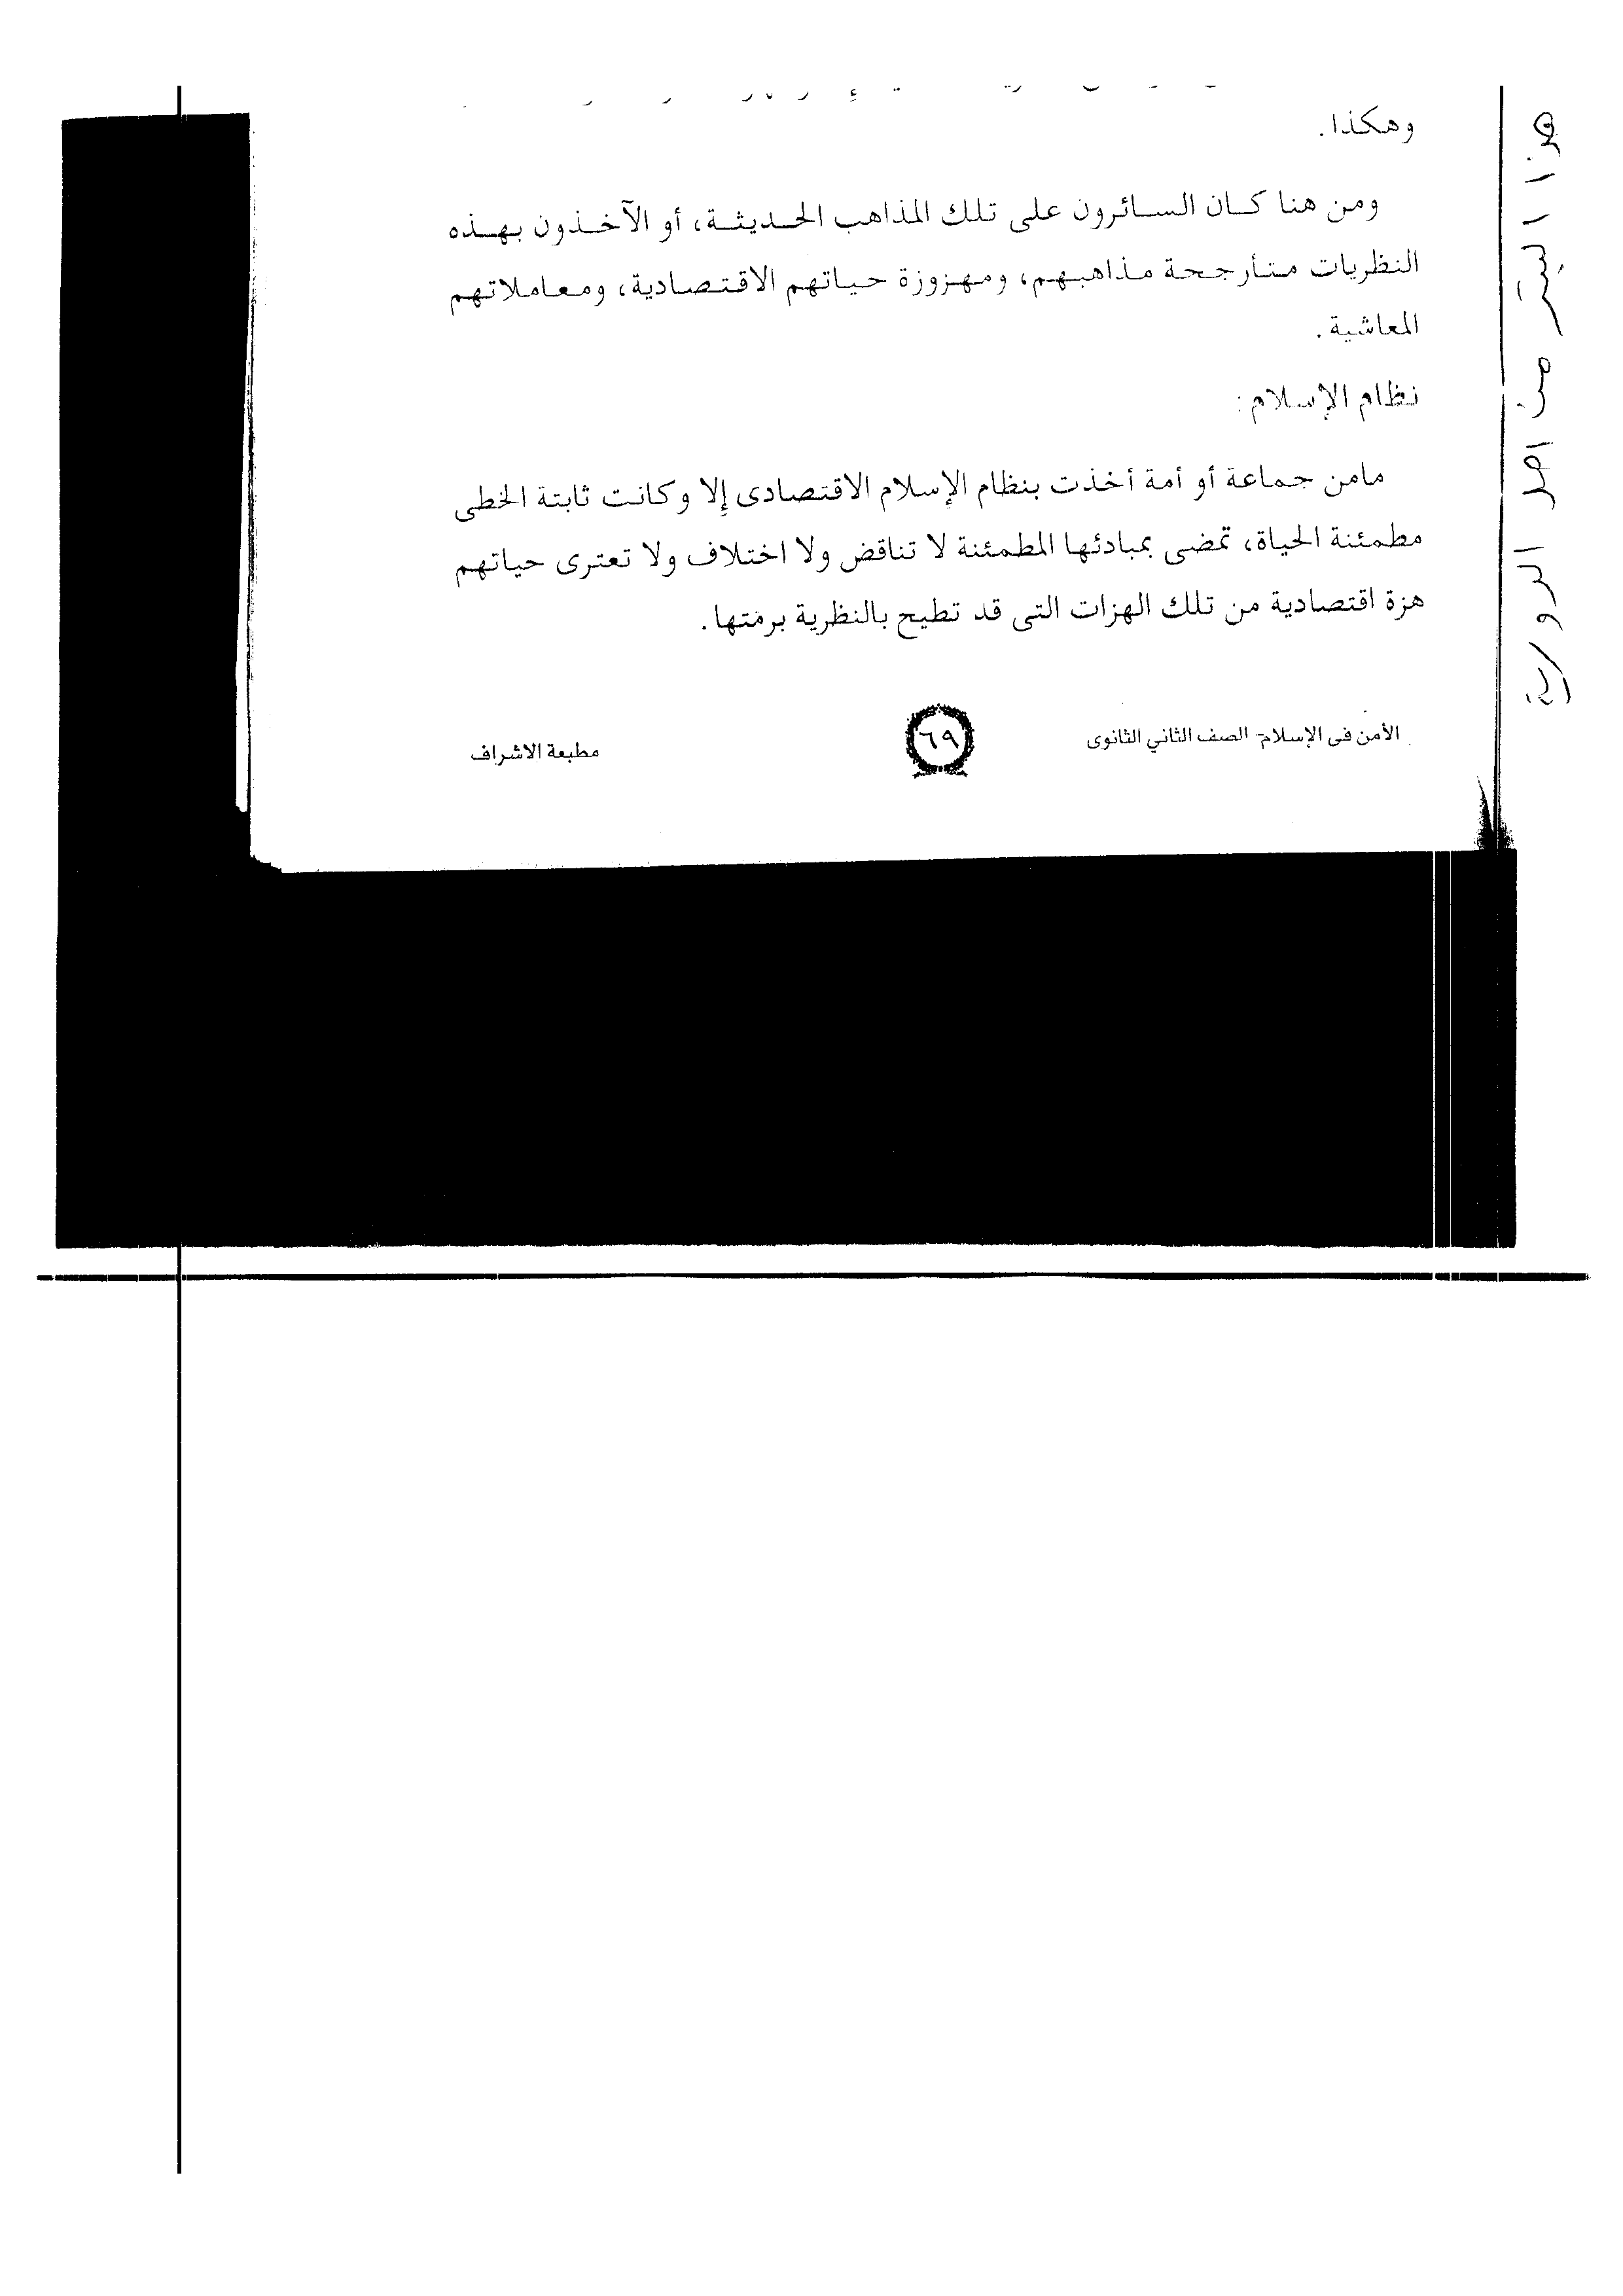 وهكذا.
ومن هنا كان السائرون على تلك المذاهب الحديثة، أو الآخذون بهذه
النظريات متأرجحة مذاهبهم، ومهزوزة حياتهم الاقتصادية، ومعاملاتهم
المعاشية.
نظام الإسلام:
مامن جماعة أو أمة أخذت بنظام الإسلام الاقتصادى إلا وكانت ثابتة الخطى
مطمئنة الحياة، تمضى بمبادئها المطمئنة لا تناقض ولا اختلاف ولا تعترى حياتهم
هزة اقتصادية من تلك الهزات التى قد تطيح بالنظرية برمتها.
الأمن فى الإسلام- الصف الثاني الثانوى
٦٩
مطبعة الاشراف
هذا البتر من احد الدورية